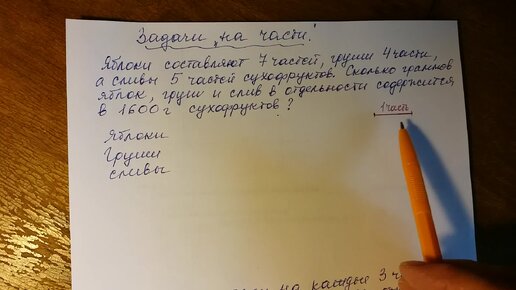 Задачи „на части".
Яблоки составляют 7 частей, груши 4 части,
а сливы 5 частей сухофруктов. Сколько граммов
яблок, груш и слив в отдельности содержится
в 1600 г сухофруктов?
1 часть
Яблоки
Груши
сливы
на каждые 3 ч